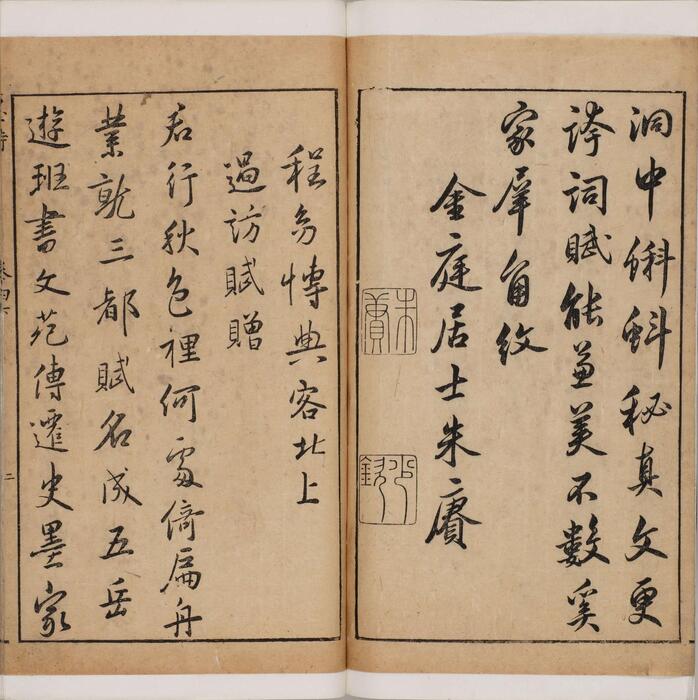 洞中蝌蚪秘真文更
誇詞賦能兼美不數奚
家犀角紋
金庭居士朱賡
朱賡
程幼博與客北上
過訪賦贈
君行秋色裡何處倚扁舟
業就三都賦名成五岳
遊班書文苑傳遷史墨家
二